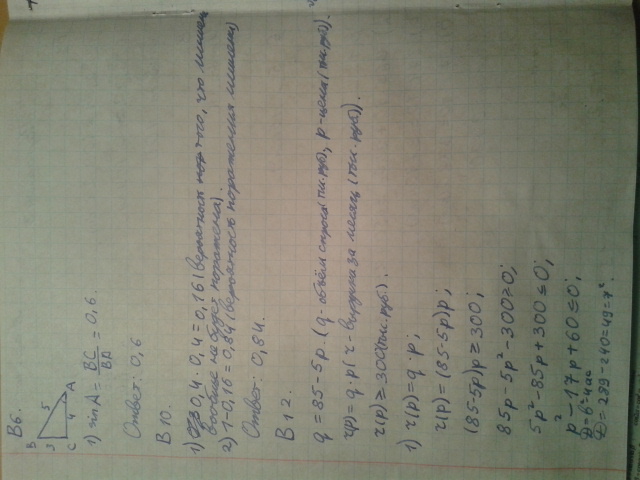 B6.
B
5
3
4
A
C
1) sin A = BC/BA = 0,6.
Ответ: 0,6
B10.
1) 0,4·0,4=0,16 (вероятность того, что мишень
вообще не будет поражена).
2) 1-0,16=0,84 (вероятность поражения мишени)
Ответ: 0,84.
B12.
q = 85-5p. (q-объём спроса (тыс.руб), p-цена (тыс.руб)).
r(p)=q·p (r-выручка за месяц (тыс.руб)).
r(p)≥300 (тыс.руб).
1) r(p)=q·p;
r(p)=(85-5p)p;
(85-5p)p≥300;
85p-5p²-300≥0;
5p²-85p+300≤0;
p²-17p+60≤0;
D=b²-4ac
D=289-240=49=7².